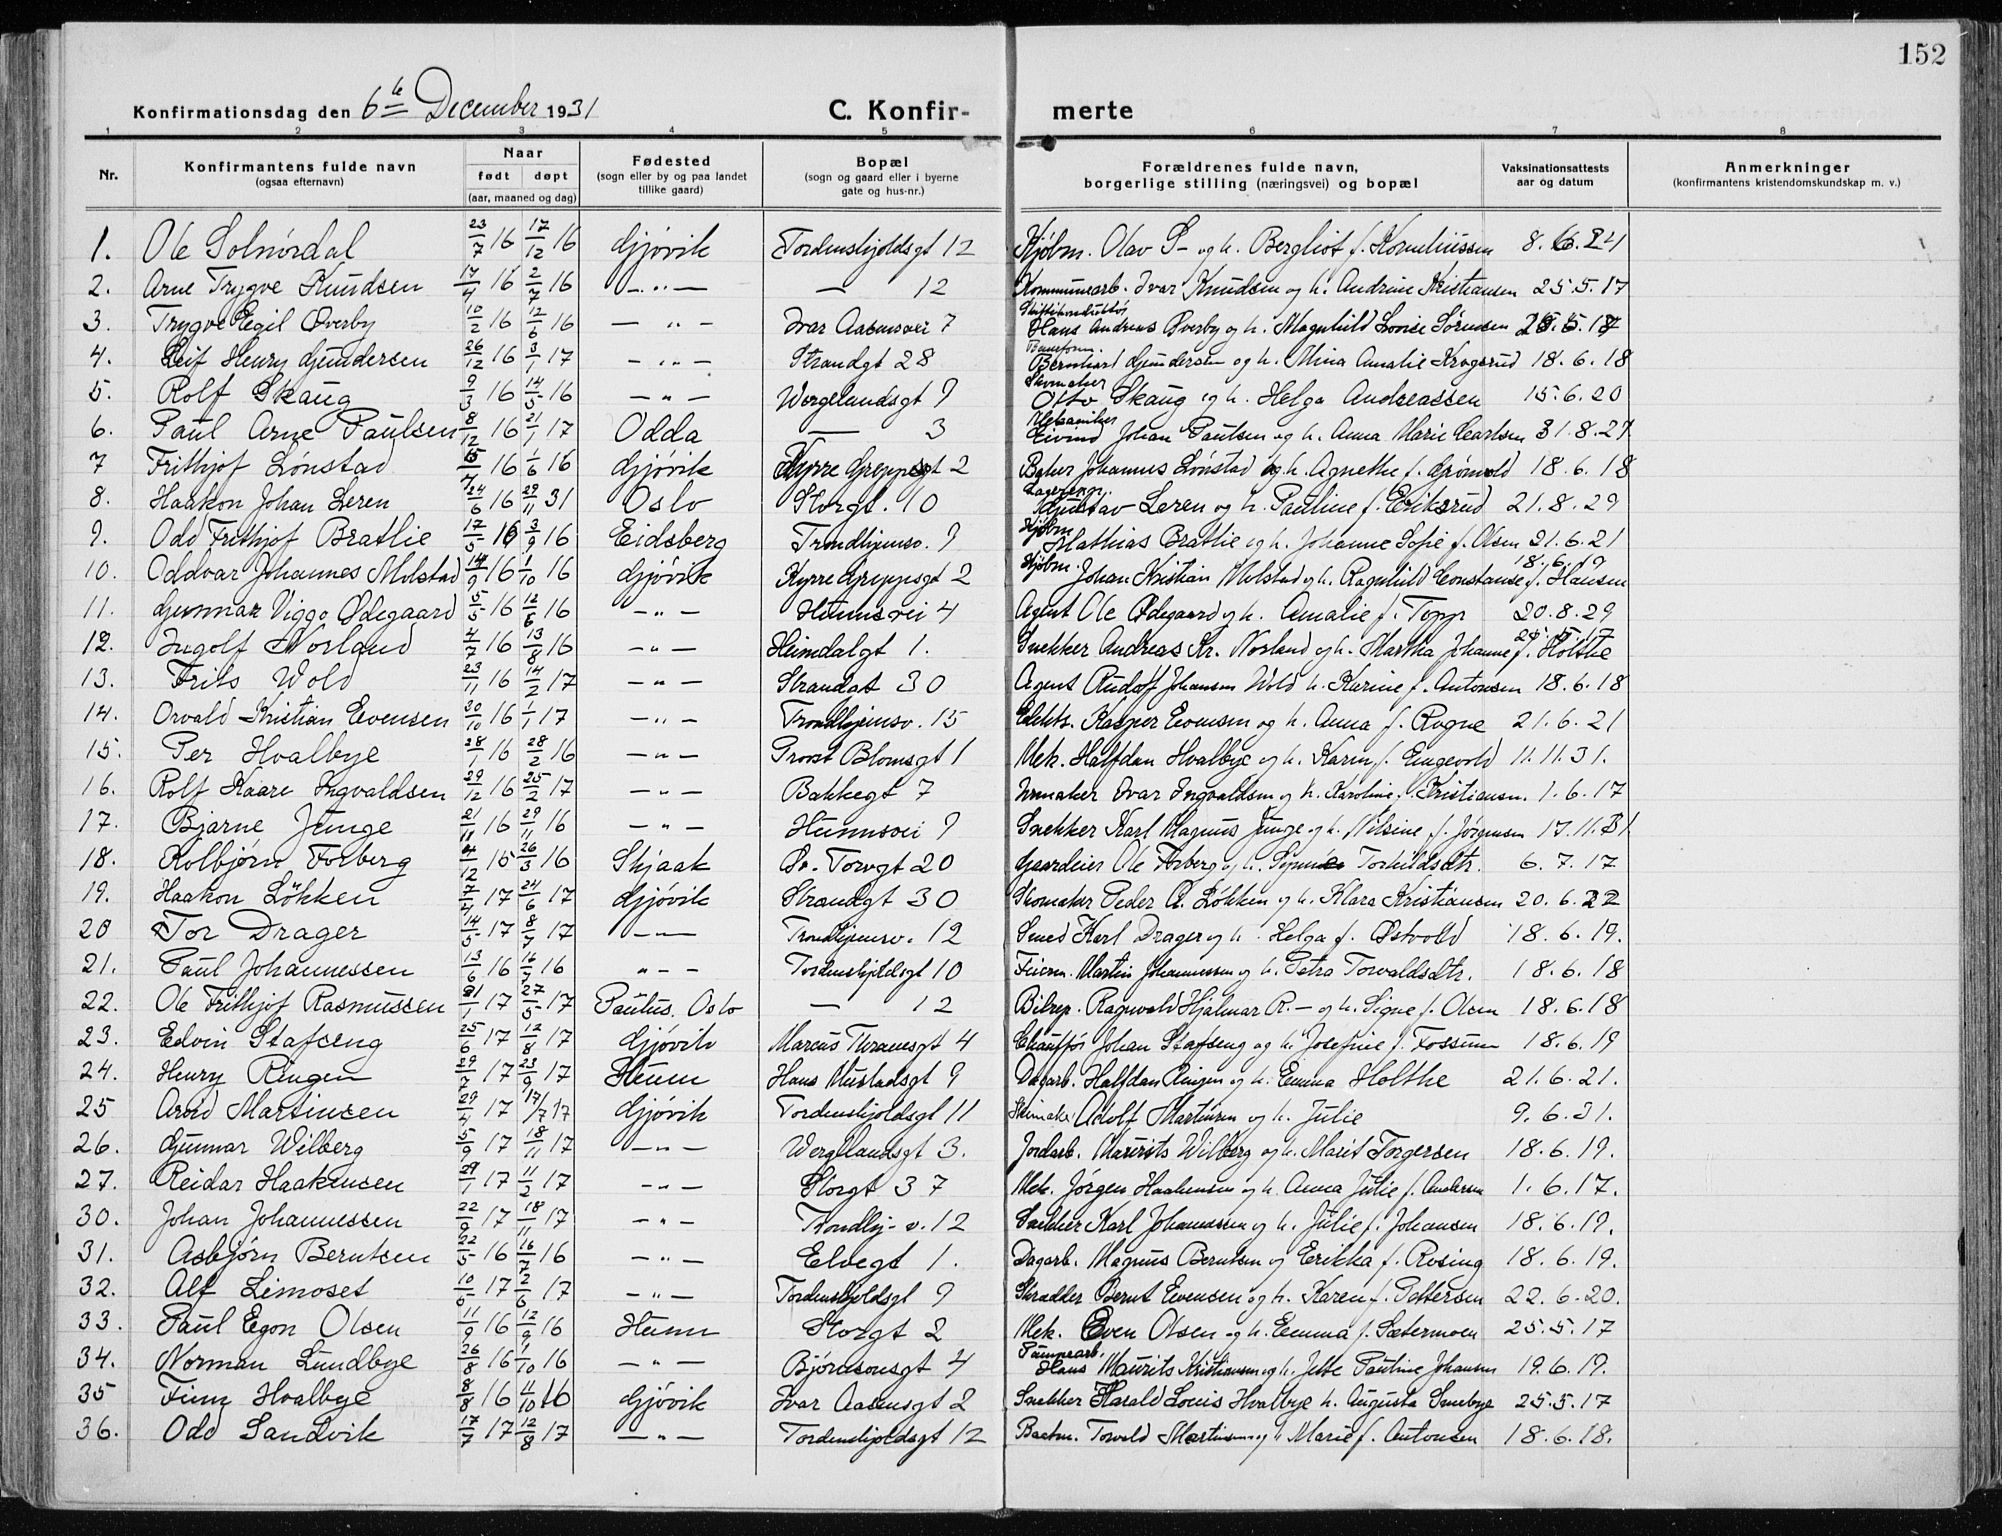 152
Konfirmationsdag den 6te December 1931 C. Konfir- merte
1 2 3 4 5 6 7 8
Nr. Konfirmantens fulde navn (ogsaa efternavn) Naar født døpt (aar, maaned og dag) Fødested (sogn eller by og paa landet tillike gaard) Bopæl (sogn og gaard eller i byerne gate og hus-nr.) Forældrenes fulde navn, borgerlige stilling (næringsvei) og bopæl Vaksinationsattests aar og datum Anmerkninger (konfirmantens kristendomskundskap m. v.)
1. Ole Solnørdal 23/7 16 17/12 16 Gjøvik Tordenskjoldsgt 12 Kjøbm. Olav S- og h. Bergliot f. Korneliussen 8.6.24
2. Arne Trygve Knudsen 17/4 16 2/7 16 - " - — 12 Kommunearb. Ivar Knudsen og h. Andrine Kristiansen 25.5.17
3. Trygve Egil Øverby 10/2 16 12/6 16 - " - Ivar Aasensvei 7 Hans Andreas Øverby og h. Magnhild Lovise Sørensen 25.5.17
4. Leif Henry Gundersen 26/12 16 3/1 17 - " - Strandgt 28 Bernhard Gundersen og h. Mina Amalie Krogsrud 18.6.18
5. Rolf Skaug 9/3 16 14/5 16 - " - Wergelandsgt 9 Skomaker Otto Skaug og h. Helga Andreassen 15.6.20
6. Paul Arne Paulsen 8/12 16 21/1 17 Odda — 3 Mekaniker Eivind Johan Paulsen og h. Anna Marie Carlsen 31.8.27
7 Frithjof Lønstad 16 1/6 16 Gjøvik Kyrre Greppsgt 2 Baker Johannes Lønstad og h. Agnethe f. Grønvold 18.6.18
8. Haakon Johan Leren 24/6 16 29/11 31 Oslo Storgt. 10 Gustav Leren og h. Pauline f. Eriksrud 21.8.29
9. Odd Frithjof Bratlie 17/5 16 3/9 16 Eidsberg Trondhjemsv. 9 Kjøbm. Mathias Bratlie og h. Johanne Sofie f. Olsen 21.6.21
10. Oddvar Johannes Molstad 14/9 16 1/10 16 Gjøvik Kyrre Greppsgt 2 Kjøbm. Johan Kristian Molstad og h. Ragnhild Constanse f. Hansen 18.6.19
11. Gunnar Viggo Ødegaard 5/5 16 12/6 16 - " - Hunnsvei 4 Agent Ole Ødegaard og h. Amalie f. Topp 20.8.29
12. Ingolf Norland 4/7 16 13/8 16 - " - Heimdalgt 1. Snekker Andreas Kr. Norland og h. Martha Johanne f. Holthe 25.5.17
13. Frits Wold 23/11 16 14/2 17 - " - Strandgt 30 Agent Rudolf Johansen Wold h. Karine f. Antonsen 18.6.18
14. Orvald Kristian Evensen 30/10 16 1/1 17 - " - Trondhjemsv. 15 Kasper Evensen og h. Anna f. Rogne 21.6.21
15. Per Hvalbye 28/1 16 28/2 16 - " - Provst Blomsgt 1 Mek. Halfdan Hvalbye og h. Karen f. Engevold 11.11.31.
16. Rolf Kaare Ingvaldsen 29/12 16 25/2 17 - " - Bakkegt 7 Urmaker Ivar Ingvaldsen og h. Karoline f. Kristiansen. 1.6.17
17. Bjarne Junge 21/11 16 29/11 16 - " - Hunnsvei 9 Snekker Karl Magnus Junge og h. Nilsine f. Jørgensen 17.11.31.
18. Kolbjørn Forberg 4/12 15 26/3 16 Skjaak Øv. Torvgt 20 Gaardeier Ole Forberg og h. Synnøve Torkildsdtr. 6.7.17
19. Haakon Løkken 7/4 17 24/6 17 Gjøvik Strandgt 30 Skomaker Peder A. Løkken og h. Klara Kristiansen 20.6.22
20 Tor Drager 14/5 17 8/7 17 - " - Trondhjemsv. 12 Smed Karl Drager og h. Helga f. Østvold 18.6.19.
21. Paul Johannessen 13/6 16 16/7 16 " - - Tordenskjoldsgt 10 Feierm. Martin Johannessen og h. Petra Torvaldsdtr. 18.6.18
22. Ole Frithjof Rasmussen 21/1 17 27/5 17 Paulus, Oslo — 12 Bilrep. Ragnvald Hjalmar R.- og h. Signe f. Olsen 18.6.18
23. Edvin Stafseng 25/6 17 12/8 17 Gjøvik Marcus Thranesgt 4 Chauffør Johan Stafseng og h. Josefine f. Fossum 18.6.19
24. Henry Ringen 29/7 17 23/9 17 Hunn Hans Mustadsgt 9 Dagarb. Halfdan Ringen og h. Emma Holthe 21.6.21.
25 Arvid Martinsen 29/4 17 17/7 17 Gjøvik Tordenskjoldsgt 11 Adolf Martinsen og h. Julie 9.6.31.
26. Gunnar Wilberg 5/9 17 18/11 17 - " - Wergelandsgt 3. Jordarb. Maurits Wilberg og h. Marit Torgersen 18.6.19.
27. Reidar Haakensen 29/1 17 11/2 17 - " - Storgt 37 Mek. Jørgen Haakensen og h. Anna Julie f. Andersen 1.6.17.
30. Johan Johannessen 22/9 17 18/11 17 - " - Trondhj. v. 12 Snekker Karl Johannessen og h. Julie f. Johansen 18.6.19.
31. Asbjørn Berntsen 22/5 16 16/7 16 - " - Elvegt 1. Dagarb. Magnus Berntsen og Erikka f. Rosing 18.6.19.
32. Alf Limoset 10/5 17 2/6 17 - " - Tordenskjoldsgt 9 Skrædder Bernt Evensen og h. Karen f. Pettersen 22.6.20.
33. Paul Egon Olsen 11/9 16 12/9 16 Hunn Storgt 2 Mek. Even Olsen og h. Emma f. Sætermoen 25.5.17
34. Norman Lundbye 26/8 16 1/10 16 - " - Bjørnsonsgt 4 Hans Maurits Kristiansen og h. Jette Pauline Johansen 19.6.19.
35 Finn Hvalbye 8/8 16 4/10 16 Gjøvik Ivar Aasensgt 2 Snekker Harald Louis Hvalbye h. Augusta Smebye 25.5.17
36. Odd Sandvik 17/7 17 12/8 17 - " - Tordenskjoldsgt 12 Torvald Martinsen og h. Marie f. Antonsen 18.6.18.